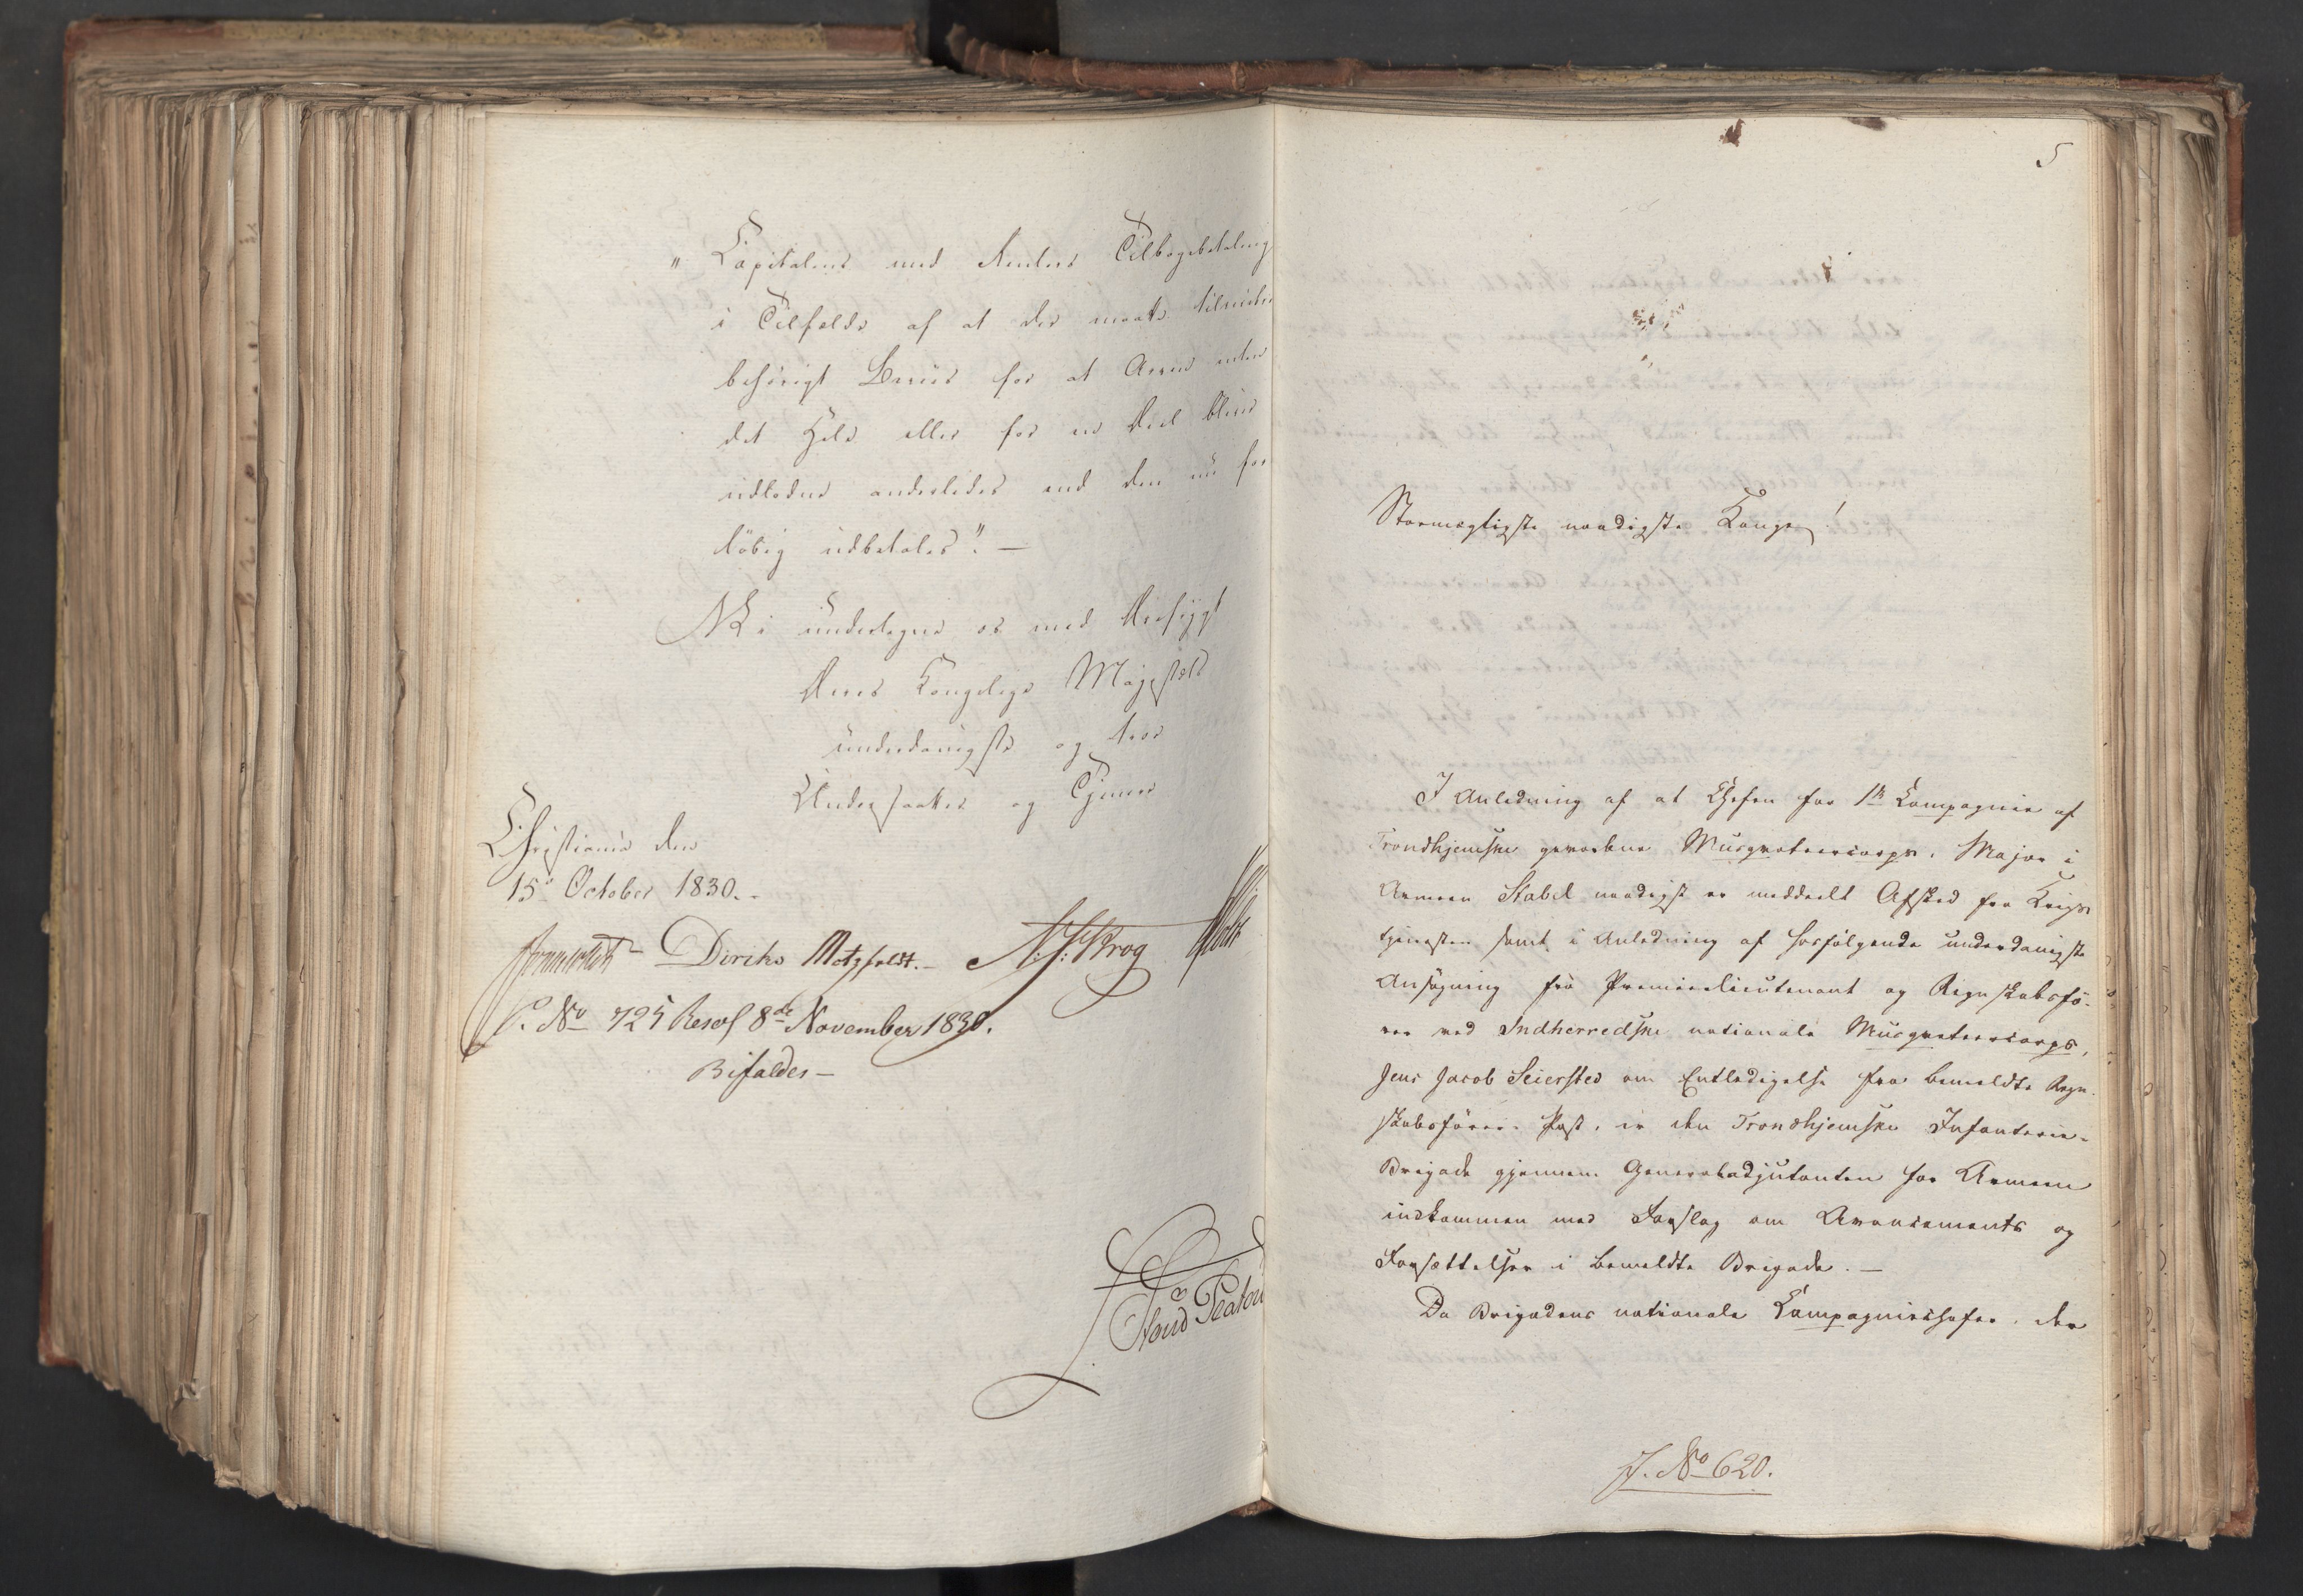 " Capitalens med Renters Tilbagebetaling
i Tilfælde af at der maatte tilveiebr
behörigt Beviis for at Arven uden
det Hele eller for en Deel bliver
udlodne anderledes end den nu for
löbig udbetales". —
Vi undertegne os med Ærefrygt
Deres Kongelige Majestæts
underdanigste og troe
Undersaatter og Tjenere
Christiania den
15de October 1830. -
Diriks Motzfeldt. - N: J: Krog Holst
P. No 725 Resol 8de November 1830.
Bifaldes —
5
Stormægtigste naadigste Konge!
I Anledning af at Chefen for 1ste Compagnie af
Trondhjemske gevorbne Musqueteercorps, Major i
Armeen Stabel naadigst er meddeelt Afsked fra Krigs
tjenesten samt i Anledning af hosfölgende underdanigste
Ansögning fra Premierlieutenant og Regnskabsfö-
rer ved Indherredske nationale Musqueteercorps,
Jens Jacob Seiersted om Entledigelse fra bemeldte Regn-
skabsförer-Post, er den Trondhjemske Infanterie-
Brigade gjennem Generaladjutanten for Armeen
indkommen med Forslag om Avancements og
Forsættelser i bemeldte Brigade. —
Da Brigadens nationale Compagniechefer, der
J. No 620.